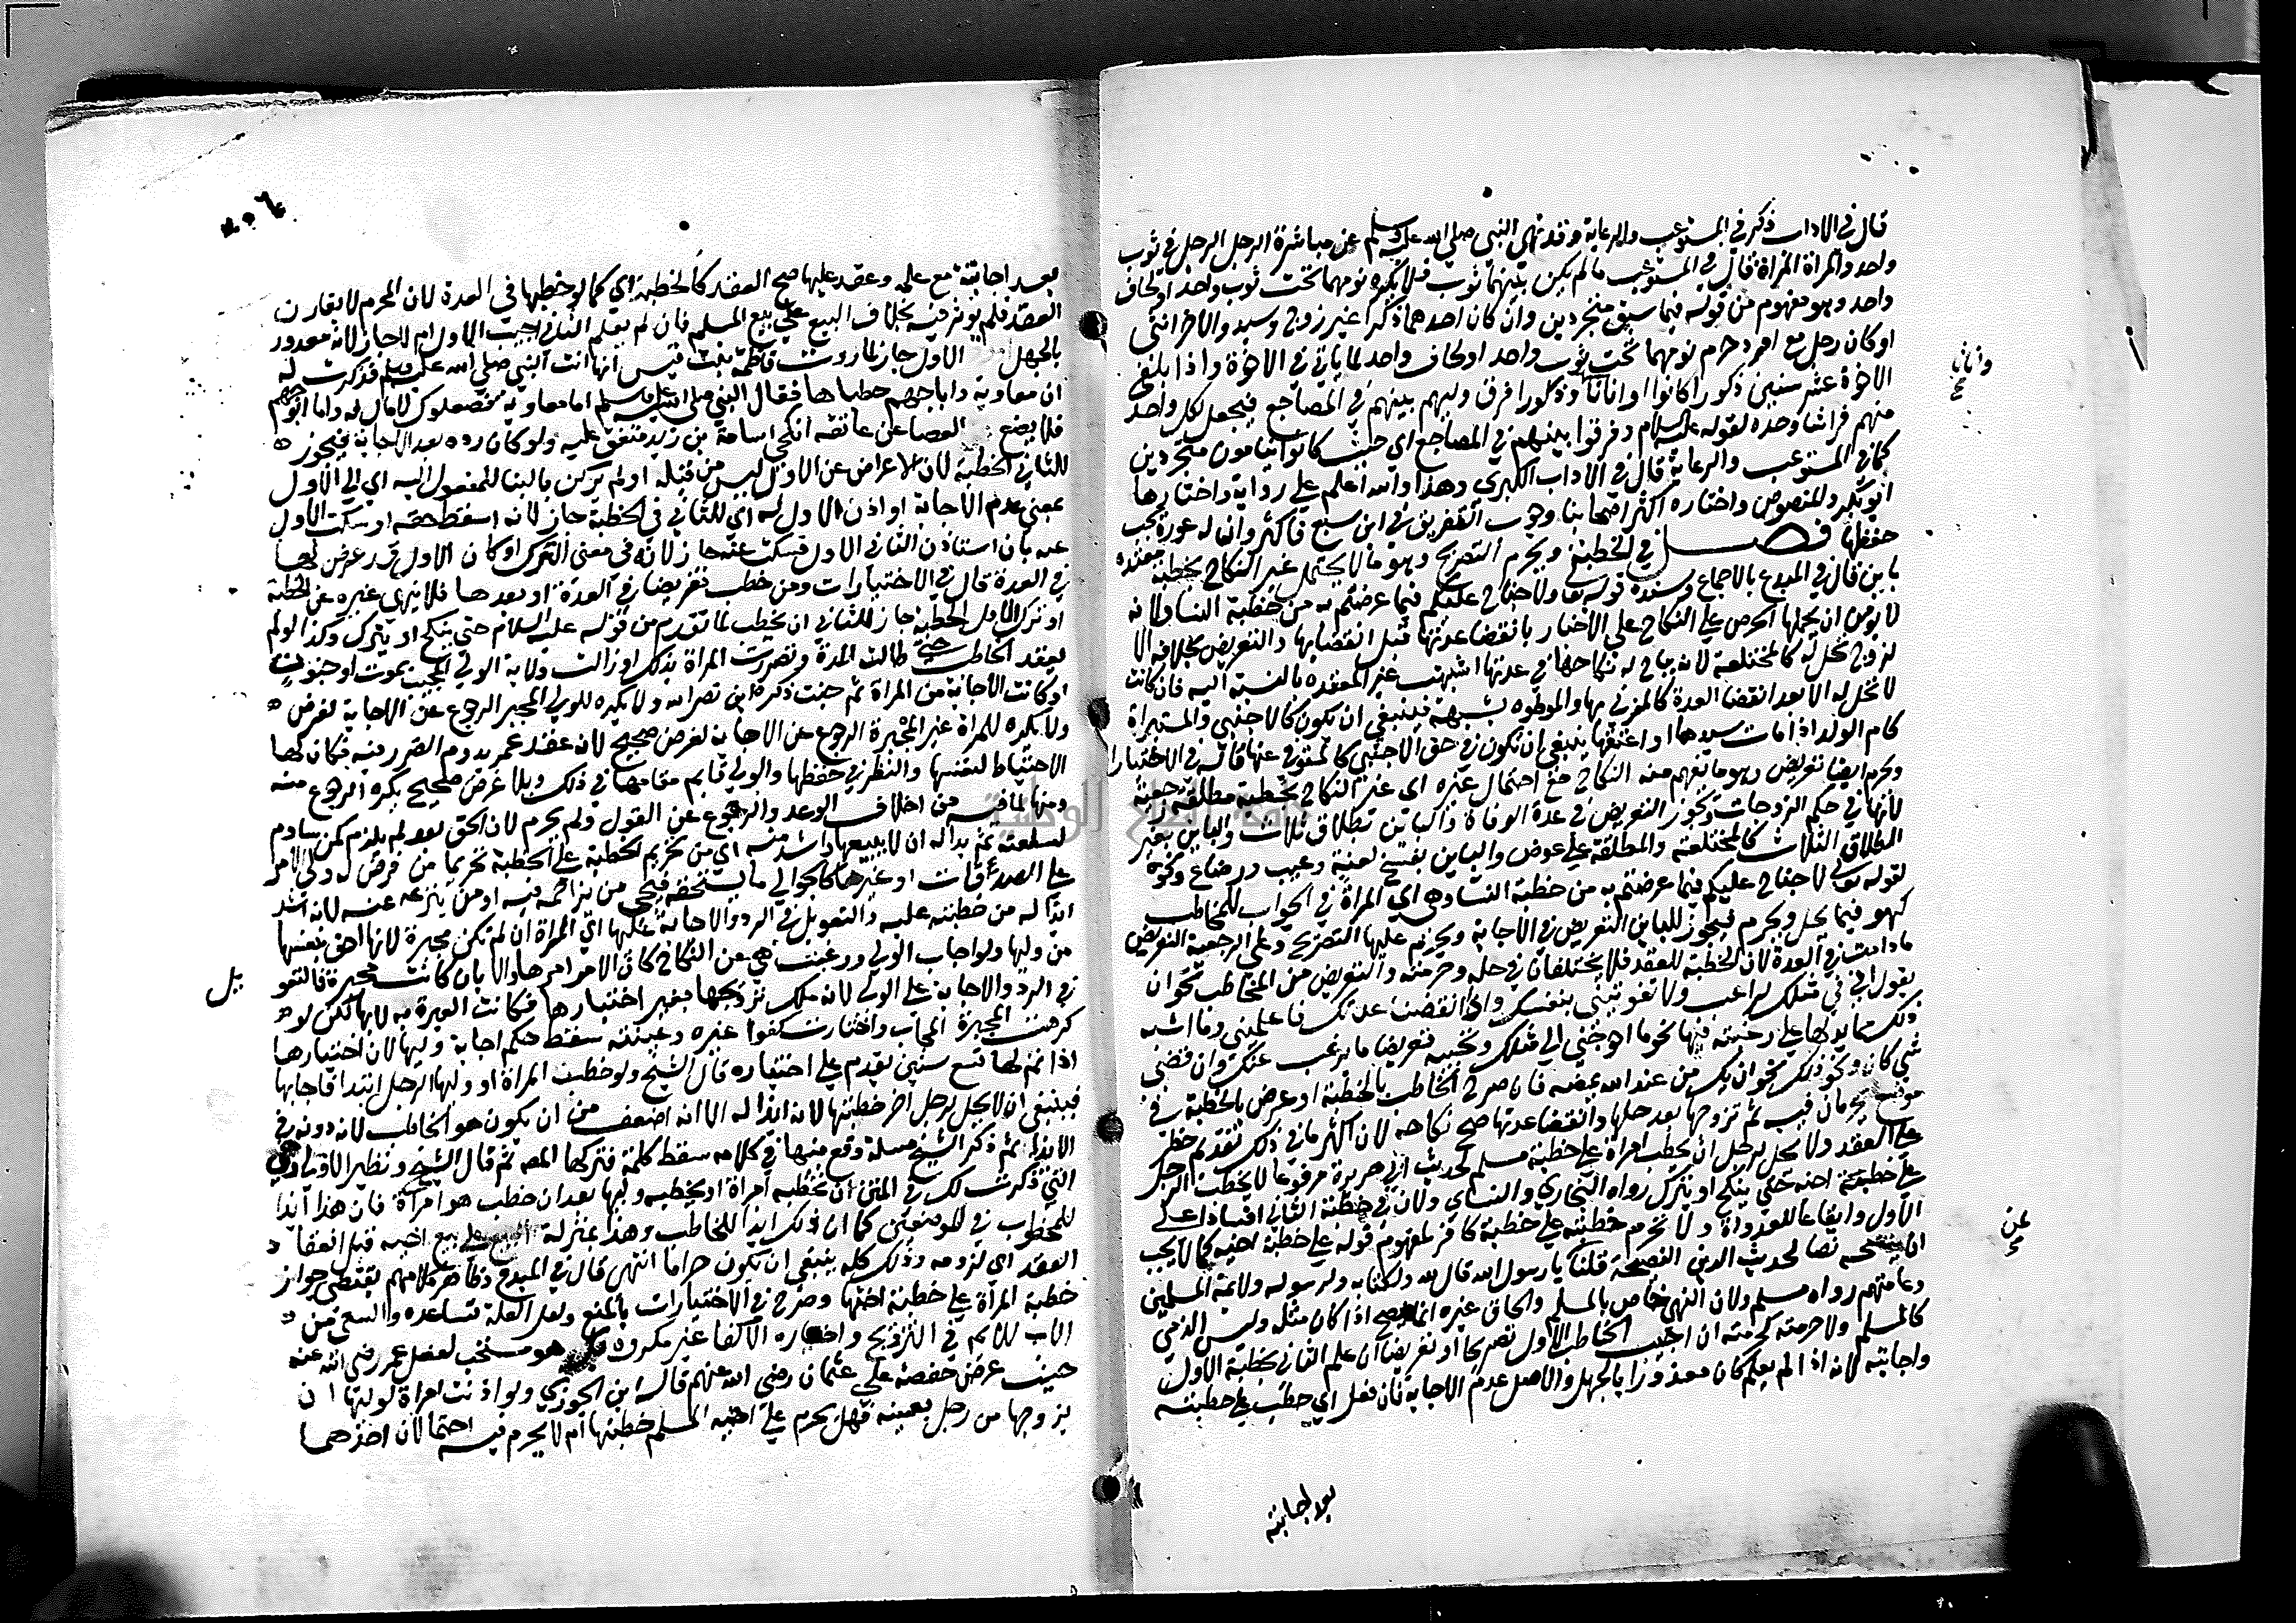 قال في الاداب ذكر في المستوعب والرعاية وقد نهى النبي صلى الله عليه وسلم عن مباشرة الرجل الرجل في ثوب
واحد والمراة المراة قال في المستوعب ما لم يكن بينهما ثوب فلا يكره نومهما تحت ثوب واحد او لحاف
واحد وهو مفهوم من قوله فيما سبق متجردين وان كان احدهما ذكرا غير زوج وسيد والاخر انثى
او كان رجل مع امرد حرم نومهما تحت ثوب واحد او لحاف واحد لما ياتي في الاخوة واذا بلغ
الاخوة عشر سنين ذكورا كانوا او اناثا او اناثا وذكورا فرق وليهم بينهم في المضاجع فيجعل لكل واحد
منهم فراشا وحده لقوله عليه السلام وفرقوا بينهم في المضاجع اي حيث كانوا ينامون متجردين
كما في المستوعب والرعاية قال في الاداب الكبرى وهذا والله اعلم على رواية واختارها
ابو بكر والمنصوص واختاره اكثر اصحابنا وجوب التفريق في ابن سبع فاكثر وان له عورة يجب
حفظها فصل في الخطبة ويحرم التصريح وهو ما لا يحتمل غير النكاح بخطبة معتدة
باين قال في المبدع بالاجماع وسنده قوله تعالى ولا جناح عليكم فيما عرضتم به من خطبة النسا ولانه
لا يومن ان يحملها الحرص على النكاح على الاخبار بانقضا عدتها قبل انقضايها والتعريض بخلافه الا
لزوج تحل له كالمختلعة لانه يباح له نكاحها في عدتها اشبهت غير المعتدة بالنسبة اليه فان كانت
لا تحل له الا بعد انقضا العدة كالمزني بها والموطوه بشبهة فينبغي ان يكون كالاجنبي والمستبراة
كام الولد اذا مات سيدها او اعتقها ينبغي ان تكون في حق الاجنبي كالمتوفى عنها قاله في الاختيارات
ويحرم ايضا تعريض وهو ما يفهم منه النكاح مع احتمال غيره اي غير النكاح بخطبة مطلقة رجعية
لانها في حكم الزوجات ويجوز التعريض في عدة الوفاة والباين بطلاق ثلاث والباين بغير
الطلاق الثلاث كالمختلعة والمطلقة على عوض والباين بفسخ لعنة وعيب ورضاع ونحوه
لقوله تعالى لا جناح عليكم فيما عرضتم به من خطبة النسا وهي اي المراة في الجواب للخاطب
كهو فيما يحل ويحرم فيجوز للباين التعريض في الاجابة ويحرم عليها التصريح وعلى الرجعية التعريض
ما دامت في العدة لان الخطبة للعقد فلا يختلفان في حله وحرمته والتعريض من الخاطب نحو ان
يقول اني في مثلك لراغب ولا تفوتيني بنفسك واذا انقضت عدتك فاعلميني وما اشبه
ذلك مما يدلها على رغبته فيها نحو ما احوجني الى مثلك وتجيبه تعريضا ما يرغب عنك وان قضي
شي كان ونحو ذلك نحو ان يك من عند الله يمضه فان صرح الخاطب بالخطبة او عرض بالخطبة في
موضع يحرمان فيه ثم تزوجها بعد حلها وانقضا عدتها صح نكاحه لان اكثر ما في ذلك تقدم حظر
على العقد ولا يحل لرجل ان يخطب امراة على خطبة مسلم لحديث ابي هريرة مرفوعا لا يخطب الرجل
على خطبة اخيه حتى ينكح او يترك رواه البخاري والنساي ولان في خطبة الثاني افسادا على
الاول وايقاعا للعداوة ولا تحرم خطبته على خطبة كافر لمفهوم قوله على خطبة اخيه كما لا يجب
ان ينصحه نصا لحديث الدين النصيحة قلنا يا رسول الله قال لله ولكتابه ولرسوله ولائمة المسلمين
وعامتهم رواه مسلم ولان النهي خاص بالمسلم والحاق غيره انما يصح اذا كان مثله وليس الذمي
كالمسلم ولا حرمته كحرمته ان اجيب الخاطب الاول تصريحا او تعريضا ان علم الثاني بخطبة الاول
واجابته لانه اذا لم يعلم كان معذورا بالجهل والاصل عدم الاجابة فان فعل اي خطب على خطبته
بعد اجابته
واناثا
عن
بعد اجابته مع علمه وعقد عليها صح العقد كالخطبة اي كما لو خطبها في العدة لان المحرم لا يقارن
العقد فلم يوثر فيه بخلاف البيع على بيع المسلم فان لم يعلم الثاني اجيب الاول ام لا جاز لانه معذور
بالجهل الاول جاز لما روت فاطمة بنت قيس انها اتت النبي صلى الله عليه وسلم فذكرت له
ان معاوية وابا جهم خطباها فقال النبي صلى الله عليه وسلم اما معاوية فصعلوك لا مال له واما ابو جهم
فلا يضع العصا عن عاتقه انكحي اسامة بن زيد متفق عليه ولو كان رده بعد الاجابة فيجوز
للثاني الخطبة لان الاعراض عن الاول ليس من قبله او لم يركن بالبنا للمفعول اليه اي الى الاول
بمعنى عدم الاجابة او اذن الاول له اي للثاني في الخطبة جاز لانه اسقط حقه او سكت الاول
عنه بان استاذن الثاني الاول فسكت عنه جاز لانه في معنى الترك او كان الاول قد عرض لها
في العدة قال في الاختيارات ومن خطب تعريضا في العدة او بعدها فلا ينهى غيره عن الخطبة
او ترك الاول الخطبة جاز للثاني ان يخطب لما تقدم من قوله عليه السلام حتى ينكح او يترك وكذا لو لم
يعقد الخاطب حتى طالت المدة وتضررت المراة بذلك او زالت ولاية الولي المجيب بموت او جنون
او كانت الاجابة من المراة ثم جنت ذكره ابن نصر الله ولا يكره للولي المجبر الرجوع عن الاجابة لغرض
ولا يكره للمراة غير المجبرة الرجوع عن الاجابة لغرض صحيح لان عقد عمر يدوم الضرر فيه فكان لها
الاحتياط لنفسها والنظر في حفظها والولي قايم مقامها في ذلك وبلا غرض صحيح يكره الرجوع منه
ومنها لما فيه من اخلاف الوعد والرجوع عن القول ولم يحرم لان الحق بعد لم يلزم كمن ساوم
لسلعته ثم بدا له ان لا يبيعها واشد منه اي من تحريم الخطبة على الخطبة تحريما من فرض له ولي الامر
على الصدقات او غيرها كالجوالي ما يستحقه فيجي من يزاحمه فيه او من ينزعه عنه لانه اشد
ايذا له من خطبته عليه والتعويل في الرد والاجابة عليها اي المراة ان لم تكن مجبرة لانها احق بنفسها
من وليها ولو اجاب الولي ورغبت هي عن النكاح كان الامر امرها والا بان كانت مجبرة فالتعويل
يل
في الرد والاجابة على الولي لانه ملك تزويجها بغير اختيارها فكانت العبرة به لا بها لكن لو
كرهت المجبرة المجاب واختارت كفوا غيره وعينته سقط حكم اجابة وليها لان اختيارها
اذا تم لها تسع سنين يقدم على اختياره قال الشيخ ولو خطبت المراة او وليها الرجل ابتدا فاجابها
فينبغي ان لا يحل لرجل اخر خطبتها لانه ايذا له الا انه اضعف من ان يكون هو الخاطب لانه دونه في
الايذا ثم ذكر الشيخ مسئلة وقع منها في كلامه سقط كلمة فتركها المص ثم قال الشيخ ونظير الاولى وهي
التي ذكرت لك في المتن ان تخطبه امراة او يخطبه وليها بعد ان خطب هو امراة فان هذا ايذا
للمخطوب في الموضعين كما ان ذلك ايذا للخاطب وهذا بمنزلة البيع على بيع اخيه قبل انعقاد
العقد اي لزومه وذلك كله ينبغي ان يكون حراما انتهى قال في المبدع وظاهر كلامهم يقتضي جواز
خطبة المراة على خطبة اختها وصرح في الاختيارات بالمنع ولعل العلة تساعده والسعي من
الاب للايم في التزويج واختياره الاكفا غير مكروه بل هو مستحب لفعل عمر رضي الله عنه
حيث عرض حفصة على عثمان رضي الله عنهم قاله ابن الجوزي ولو اذنت امراة لوليها ان
يزوجها من رجل بعينه فهل يحرم على اخيه المسلم خطبتها ام لا يحرم فيه احتمالان احدهما